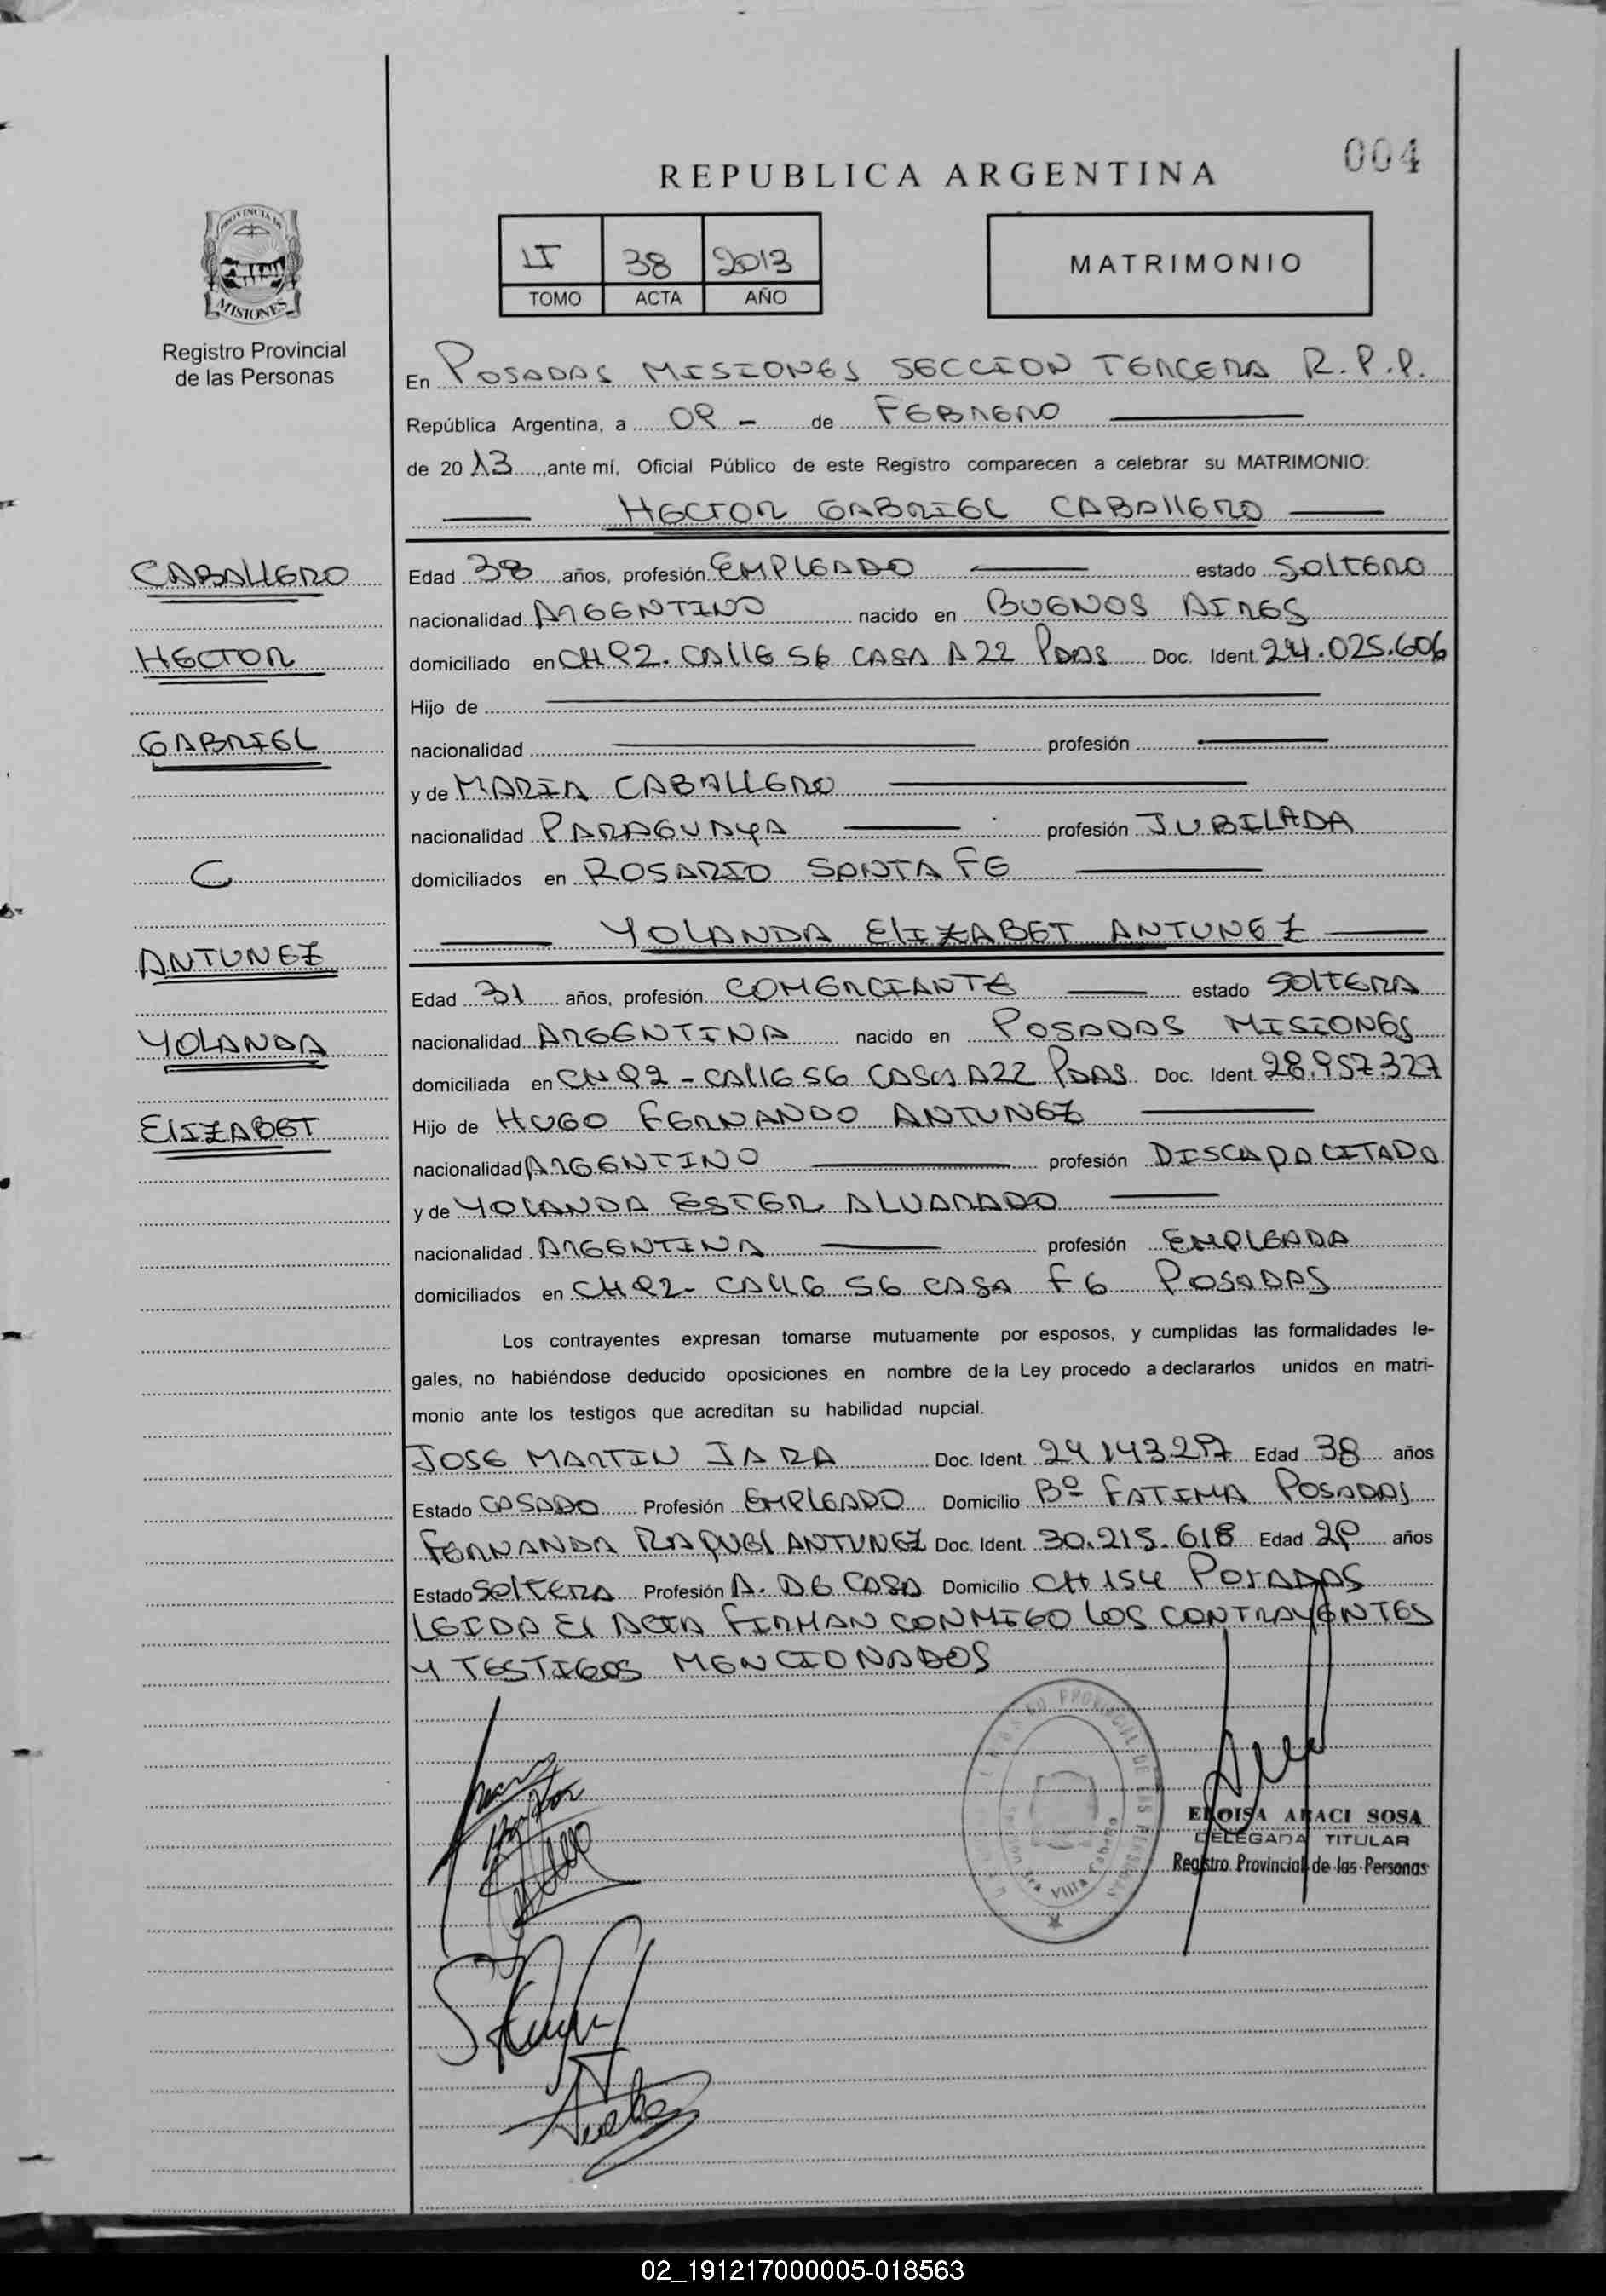 004
REPUBLICA ARGENTINA
PROVINCIA DE
MISIONES
Registro Provincial
de las Personas
38 2013
TOMO ACTA AÑO
MATRIMONIO
En POSADAS MISIONES SECCION TERCERA R.P.P.
República Argentina, a 09 - de FEBRERO
de 2013, ante mí, Oficial Público de este Registro comparecen a celebrar su MATRIMONIO:
HECTOR GABRIEL CABALLERO
CABALLERO
HECTOR
GABRIEL
C
ANTUNEZ
YOLANDA
ELIZABET
Edad 38 años, profesión EMPLEADO estado SOLTERO
nacionalidad ARGENTINO nacido en BUENOS AIRES
domiciliado en CH 92. CALLE 56 CASA A22 PDAS Doc. Ident. 24.025.606
Hijo de
nacionalidad profesión
y de MARIA CABALLERO
nacionalidad PARAGUAYA profesión JUBILADA
domiciliados en ROSARIO SANTA FE
YOLANDA ELIZABET ANTUNEZ
Edad 31 años, profesión COMERCIANTE estado SOLTERA
nacionalidad ARGENTINA nacido en POSADAS MISIONES
domiciliada en CH 92 - CALLE 56 CASA A22 PDAS Doc. Ident. 28.957.327
Hijo de HUGO FERNANDO ANTUNEZ
nacionalidad ARGENTINO profesión DISCAPACITADO
y de YOLANDA ESTER ALVARADO
nacionalidad ARGENTINA profesión EMPLEADA
domiciliados en CH 92- CALLE 56 CASA F6 POSADAS
Los contrayentes expresan tomarse mutuamente por esposos, y cumplidas las formalidades le-
gales, no habiéndose deducido oposiciones en nombre de la Ley procedo a declararlos unidos en matri-
monio ante los testigos que acreditan su habilidad nupcial.
JOSE MARTIN JARA Doc. Ident. 24143297 Edad 38 años
Estado CASADO Profesión EMPLEADO Domicilio Bº FATIMA POSADAS
FERNANDA RAQUEL ANTUNEZ Doc. Ident. 30.215.618 Edad 29 años
Estado SOLTERA Profesión A. DE CASA Domicilio CH 154 POSADAS
LEIDA EL ACTA FIRMAN CONMIGO LOS CONTRAYENTES
Y TESTIGOS MENCIONADOS
PROVINCIAL DE LAS PERSONAS
Villa Cabello
ELOISA ARACI SOSA
DELEGADA TITULAR
Registro Provincial de las Personas
02_191217000005-018563